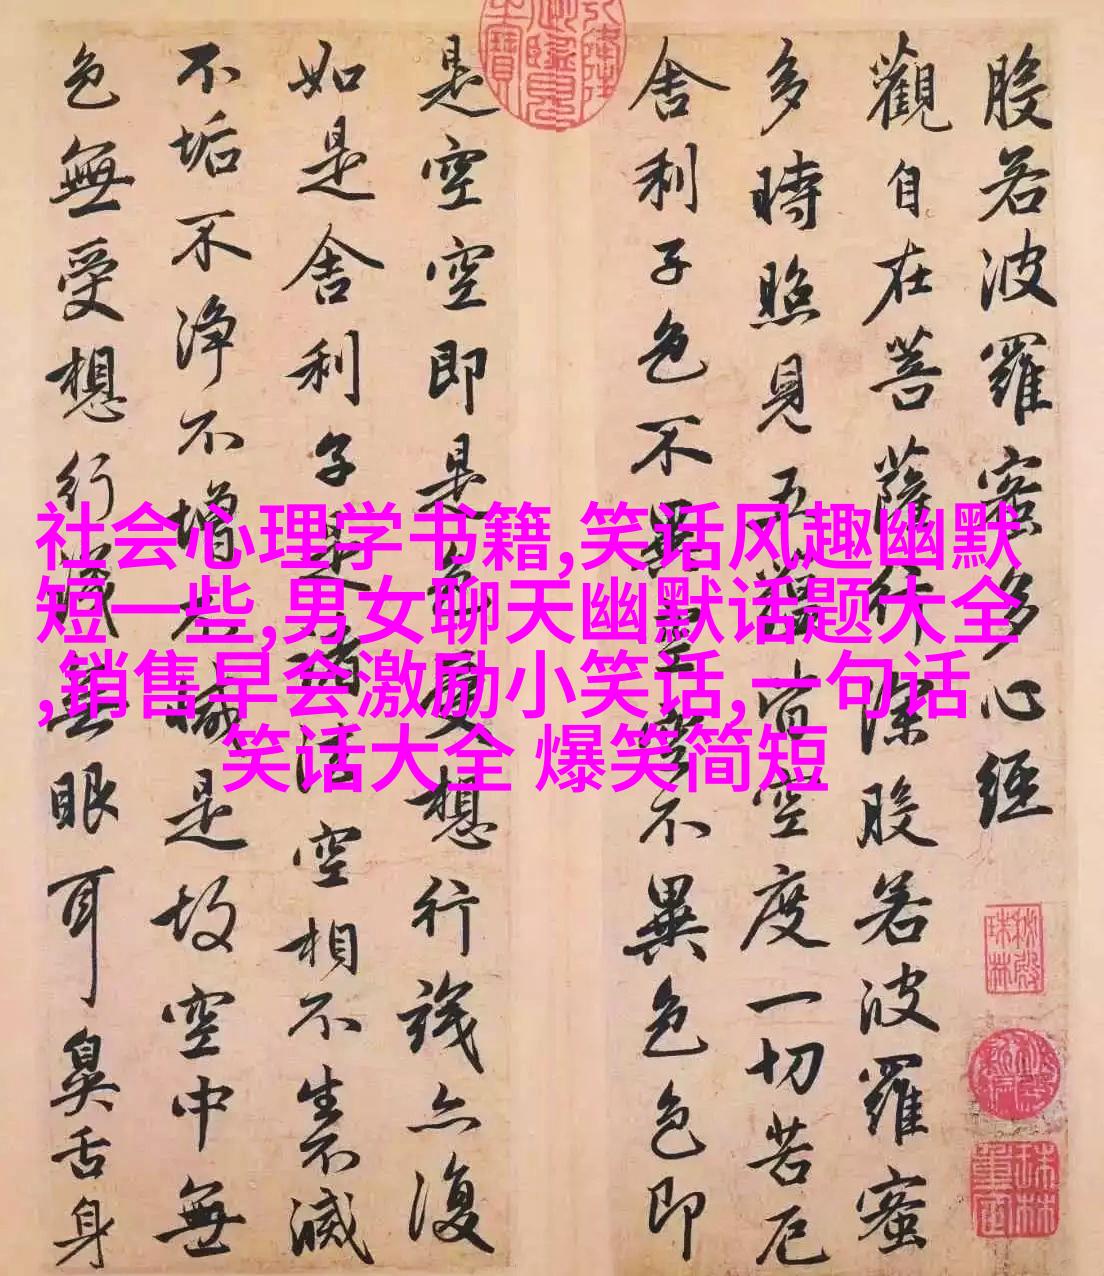 般若波羅密多心經
觀自在菩薩行深般若波羅蜜
多時照見五蘊皆空度一切苦厄
舍利子色不異空空不異色色即
是空空即是色受想行識亦復
如是舍利子是諸法空相不生不滅
不垢不淨不增不減是故空中無
色無受想行識無眼耳鼻舌身
社会心理学书籍,笑话风趣幽默
短一些,男女聊天幽默话题大全
,销售早会激励小笑话,一句话
笑话大全 爆笑简短